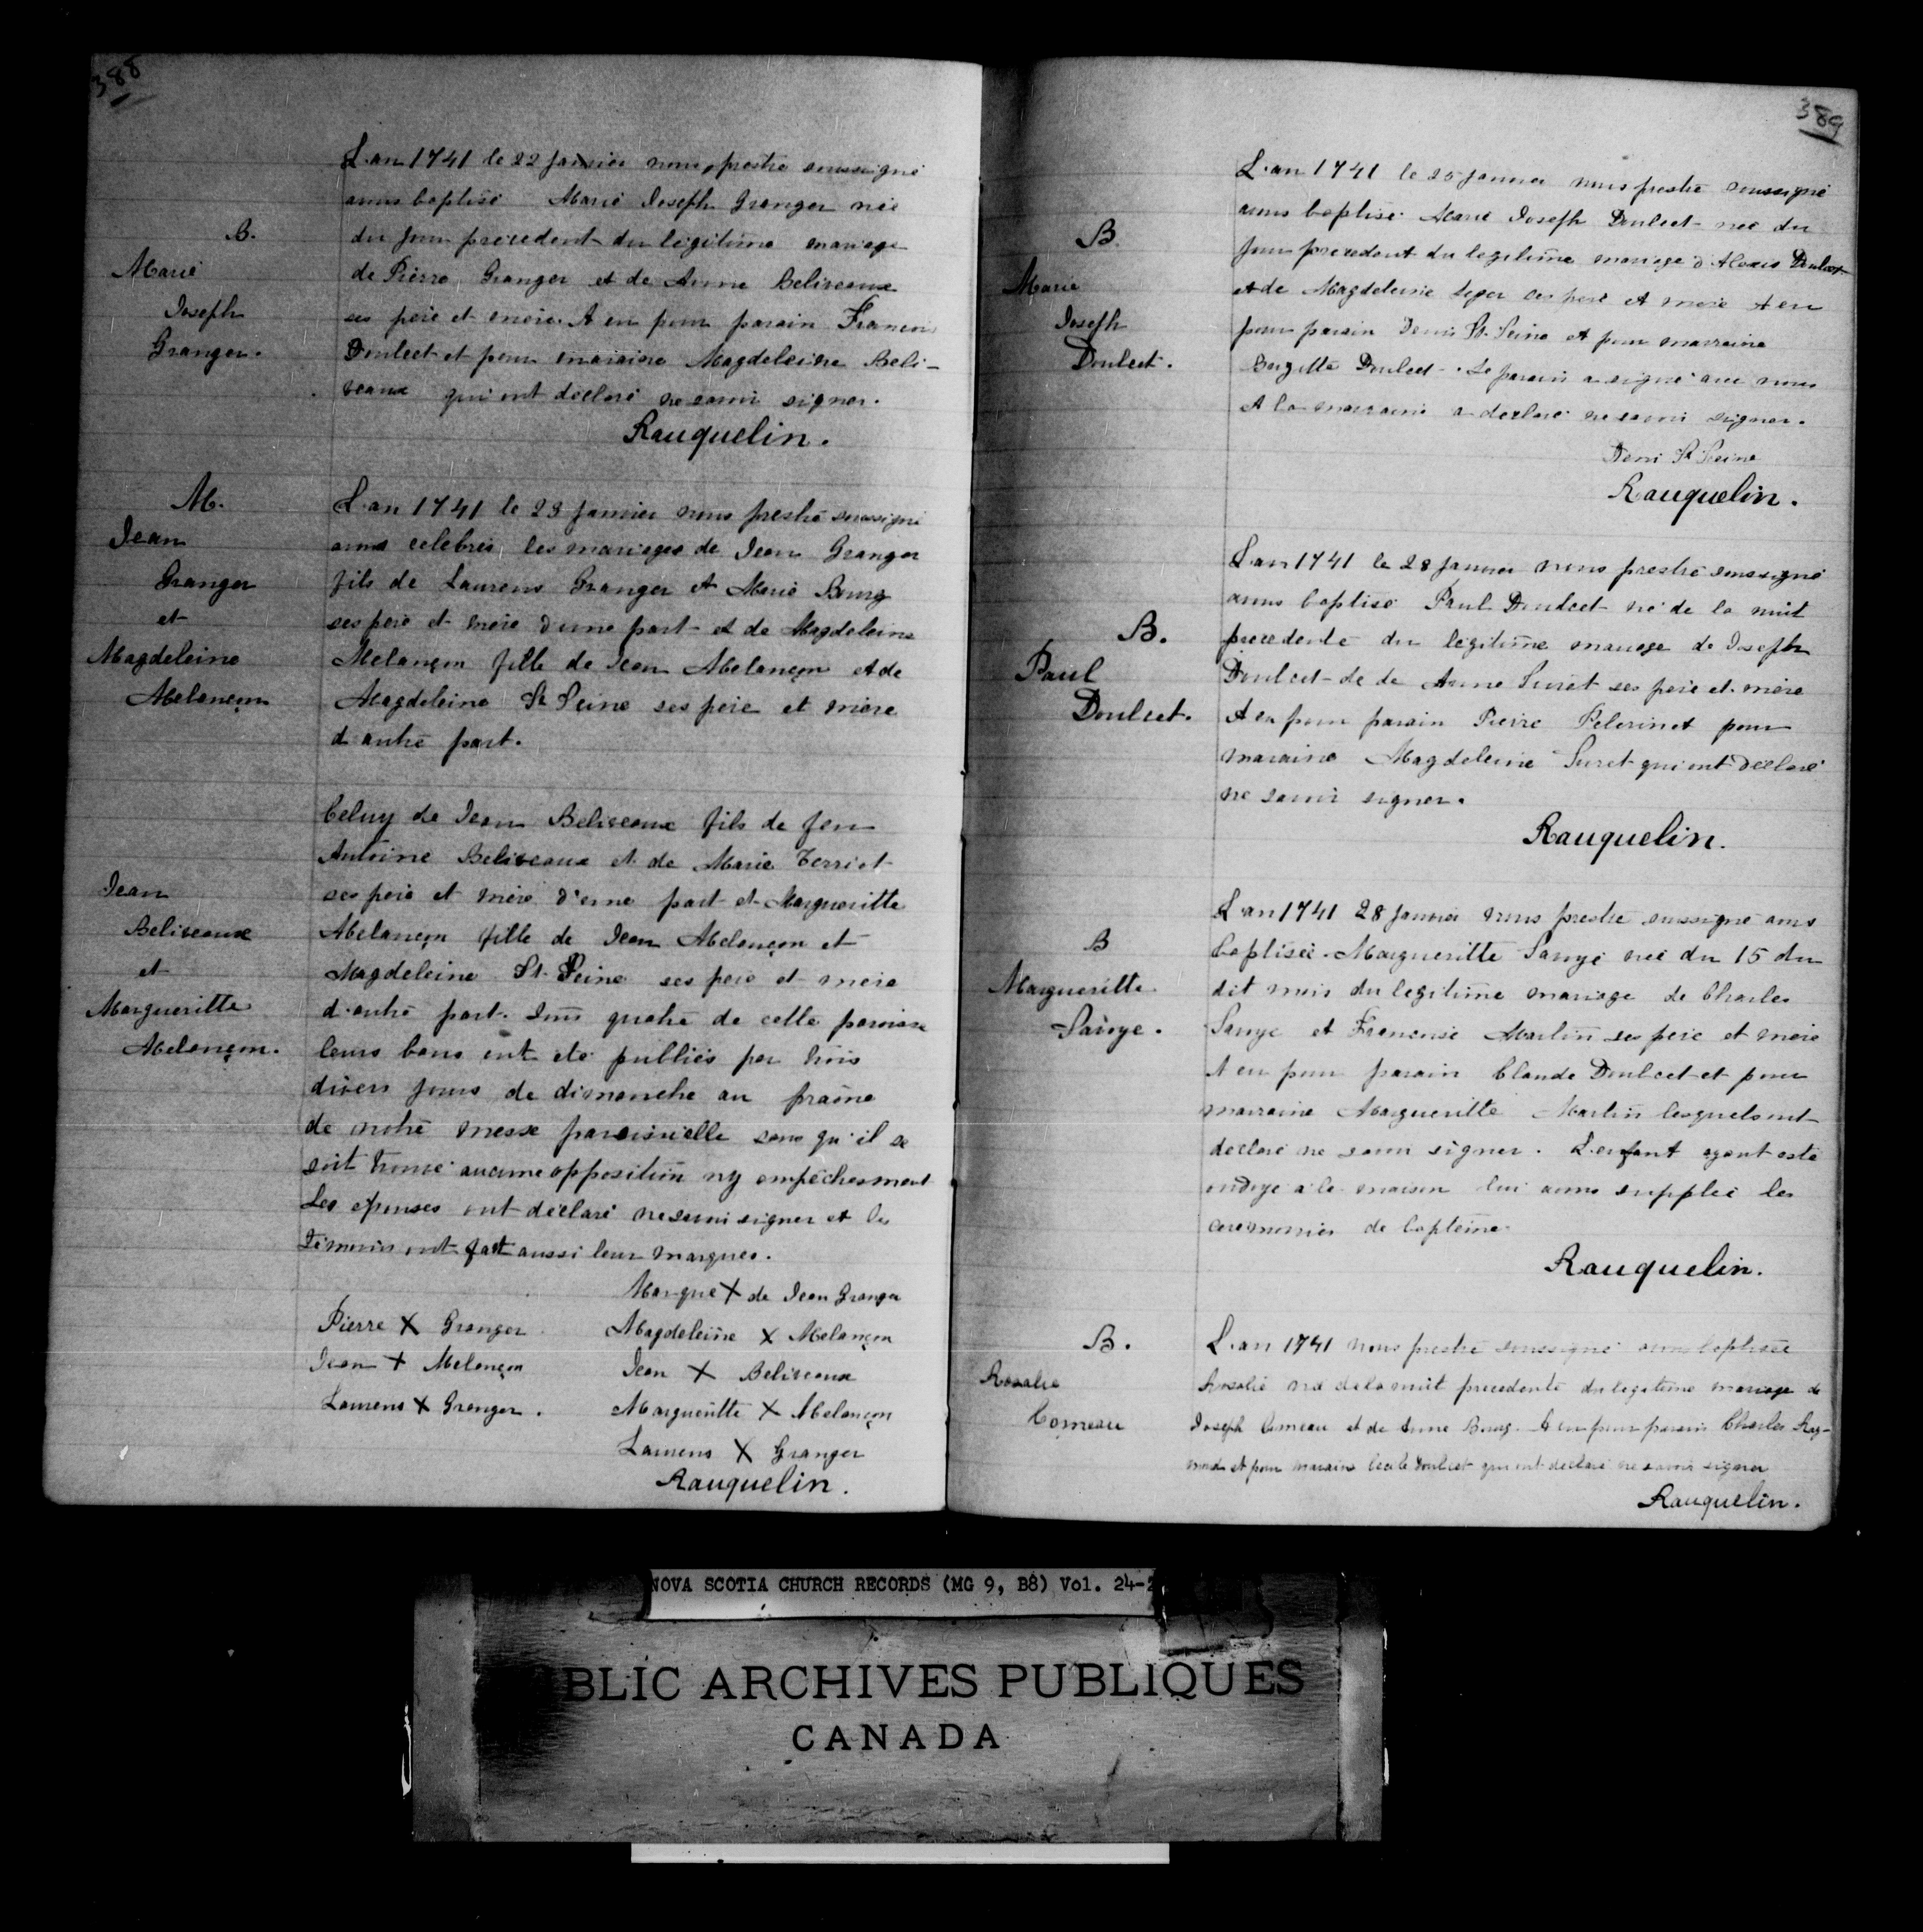 388
L.an 1741 le 22 janvier nous prestre soussigné
avons baptisé Marie Joseph Granger née
B.
du jour precedent du legitime mariage
Marie
de Pierre Granger et de Anne Beliveaux
Joseph
ses pere et mere. A eu pour parain Francois
Granger.
Doulcet et pour maraine Magdeleine Beli-
veaux qui ont declaré ne savoir signer.
Rauquelin.
M.
L.an 1741 le 23 janvier nous prestre soussigné
Jean
avons celebrés les mariages de Jean Granger
Granger
fils de Laurens Granger et Marie Bourg
et
ses pere et mere d'une part et de Magdeleine
Magdeleine
Melançon fille de Jean Melançon et de
Melançon
Magdeleine St Seine ses pere et mere
d autre part.
Celuy de Jean Beliveaux fils de feu
Antoine Beliveaux et de Marie Terriot
Jean
ses pere et mere d'une part et Margueritte
Beliveaux
Melançon fille de Jean Melançon et
et
Magdeleine St. Seine ses pere et mere
Margueritte
d.autre part. Tous quatre de cette paroisse
Melançon.
leurs bans ont eté publiés par trois
divers jours de dimanche au praône
de notre messe paroissielle sans qu'il se
soit trouvé aucune opposition ny empêchesment
Les epouses ont declaré ne savoir signer et les
temoins ont fait aussi leur marques.
Marque X de Jean Granger
Pierre X Granger
Magdeleine X Melançon
Jean X Melançon
Jean X Beliveaux
Laurens X Granger.
Margueritte X Melançon
Laurens X Granger
Rauquelin.
389
L.an 1741 le 25 janvier nous prestre soussigné
avons baptisé Marie Joseph Doulcet née du
B.
jour precedent du legitime mariage d'Alexis Doulcet
Marie
et de Magdeleine Leger ses pere et mere A eu
Joseph
pour parain Denis St. Seine et pour marraine
Doulcet.
Brigitte Doulcet. Le parain a signé avec nous
et la marraine a declaré ne savoir signer.
Deni St Seine
Rauquelin.
L'an 1741 le 28 janvier nous prestre soussigné
avons baptisé Paul Doulcet né de la nuit
B.
precedente du legitime mariage de Joseph
Paul
Doulcet de de Anne Suret ses pere et mere
Doulcet.
A eu pour parain Pierre Pelerin et pour
maraine Magdeleine Suret qui ont declaré
ne savoir signer.
Rauquelin.
L.an 1741 28 janvier nous prestre soussigné avons
B
baptisée Margueritte Savye née du 15 du
Margueritte
dit mois du legitime mariage de Charles
Savye.
Savye et Francoise Martin ses pere et mere
A eu pour parain Claude Doulcet et pour
marraine Margueritte Martin lesquels ont
declaré ne savoir signer. L.enfant ayant esté
ondoyé a la maison lui avons supplée les
ceremonies de bapteme.
Rauquelin.
B.
L.an 1741 nous prestre soussigné avons baptisée
Rosalie
Rosalie née de la nuit precedente du legitime mariage de
Comeau
Joseph Comeau et de Anne Bourg. A eu pour parain Charles Ray-
mond et pour maraine Cecile Doulcet qui ont declaré ne savoir signer
Rauquelin.
NOVA SCOTIA CHURCH RECORDS (MG 9, B8) Vol. 24-2
BLIC ARCHIVES PUBLIQUES
CANADA